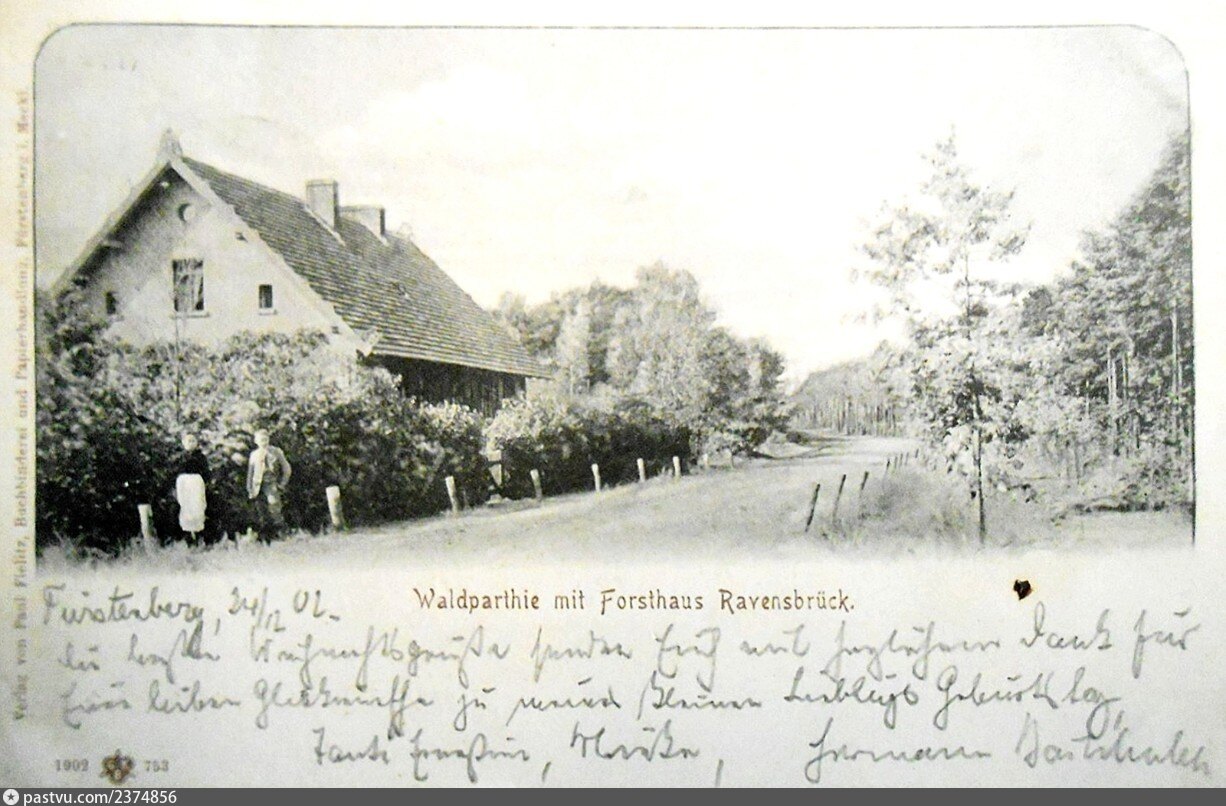 Verlag von Paul Fielitz, Buchbinderei und Papierhandlung, Fürstenberg i. Meckl.
Waldparthie mit Forsthaus Ravensbrück.
Fürstenberg, 24/12 02.
die besten Weihnachtsgrüße senden Euch mit herzlichem Dank für
Eure lieben Glückwünsche zu meines kleinen Lieblings Geburtstag,
Tante Hermann
1902 753
pastvu.com/2374856